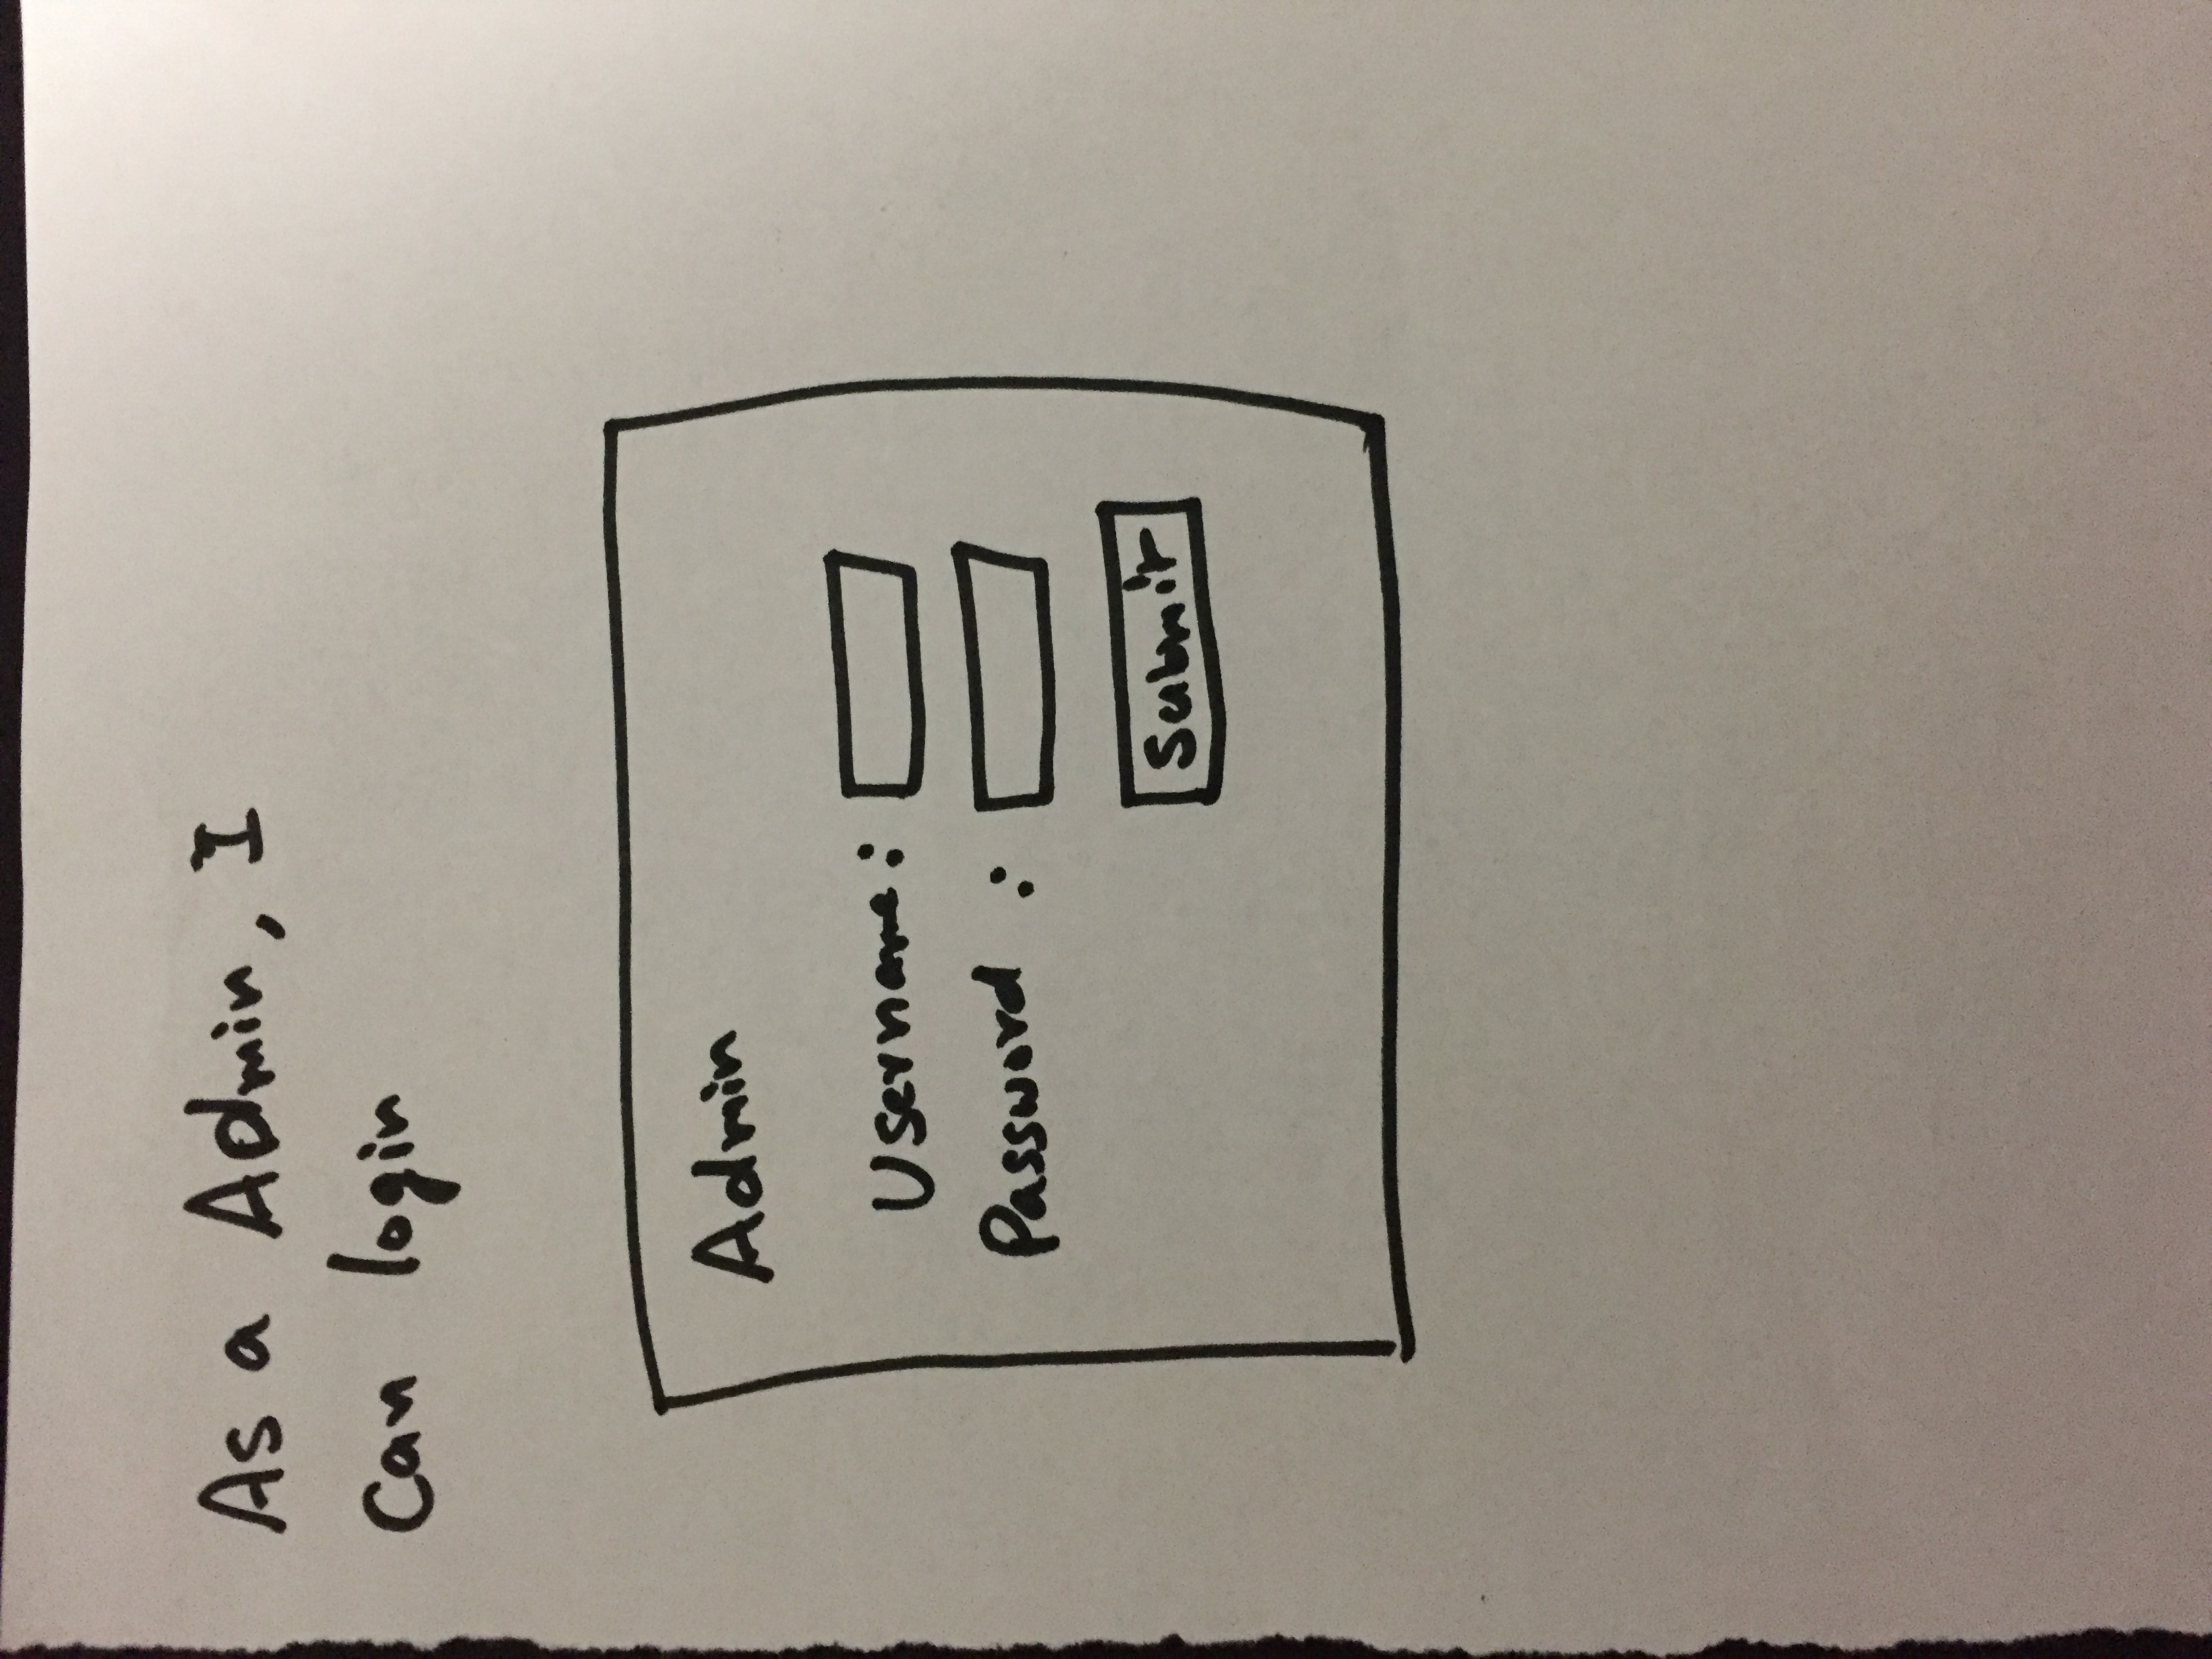 As a Admin, I
Can login
Admin
Username :
Password :
Submit